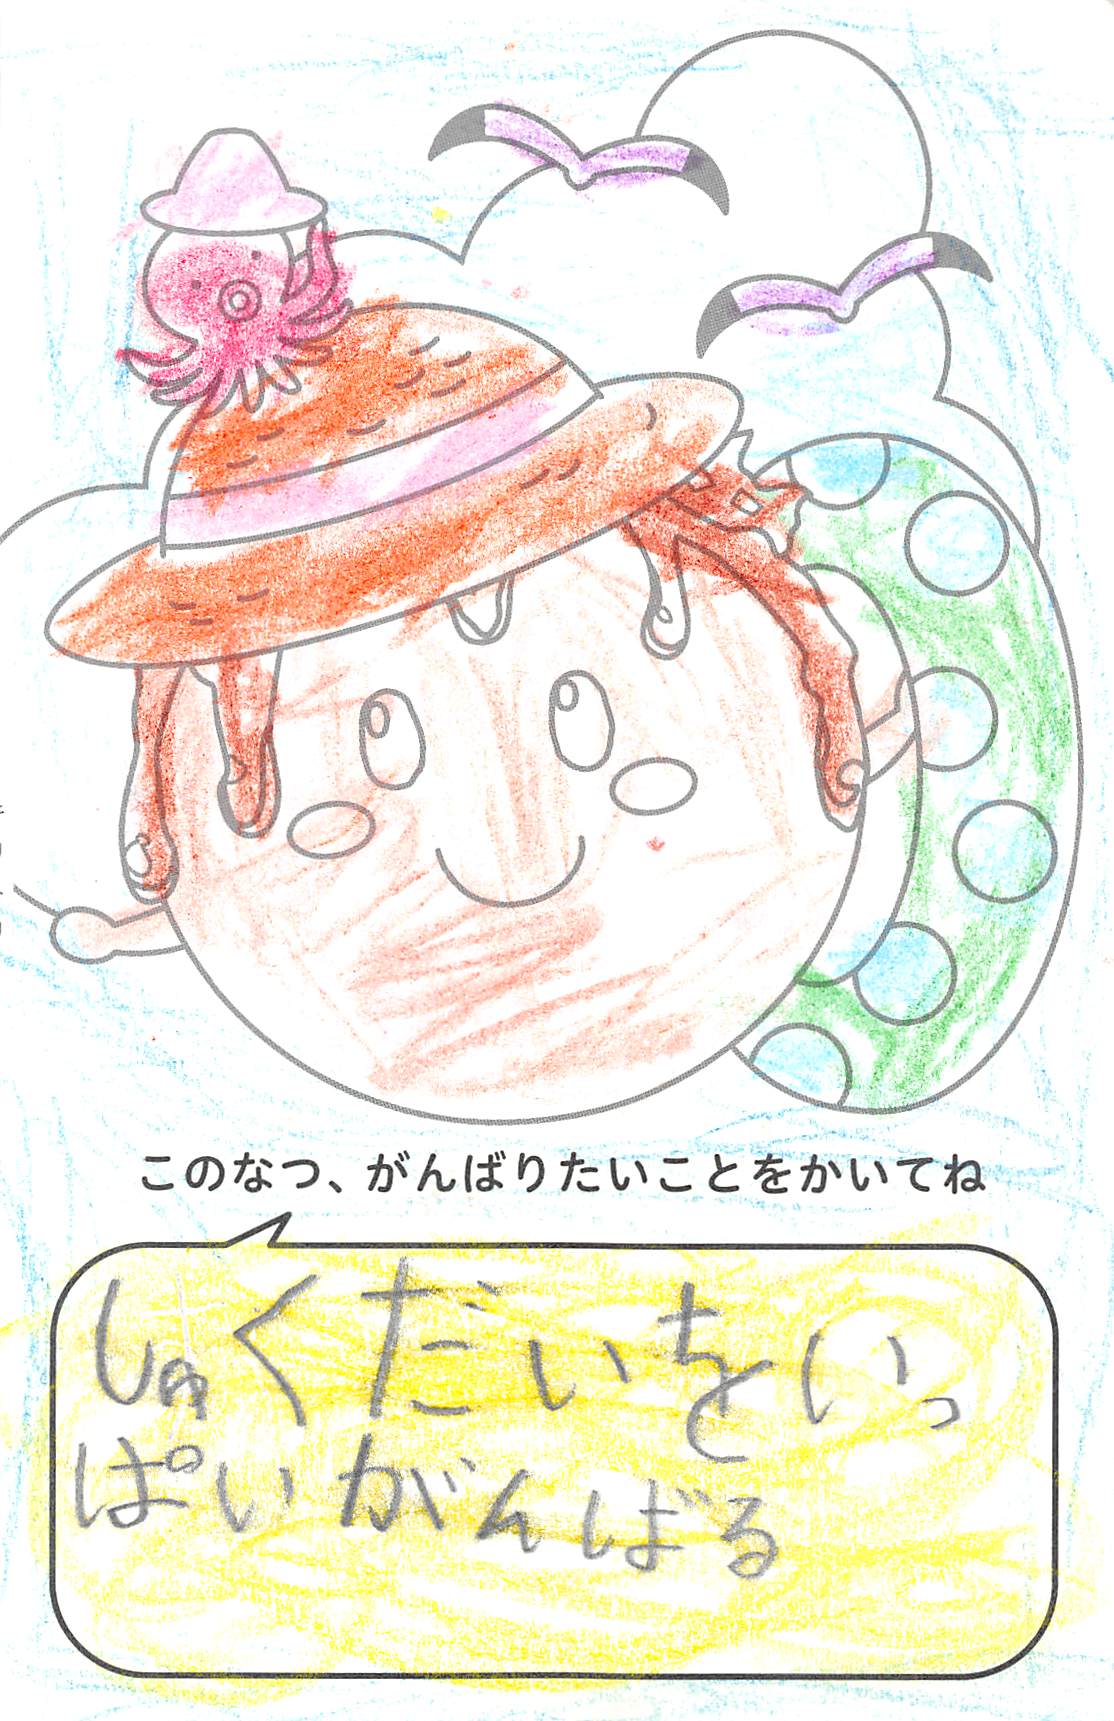 このなつ、がんばりたいことをかいてね
しゅくだいをいっ
ぱいがんばる